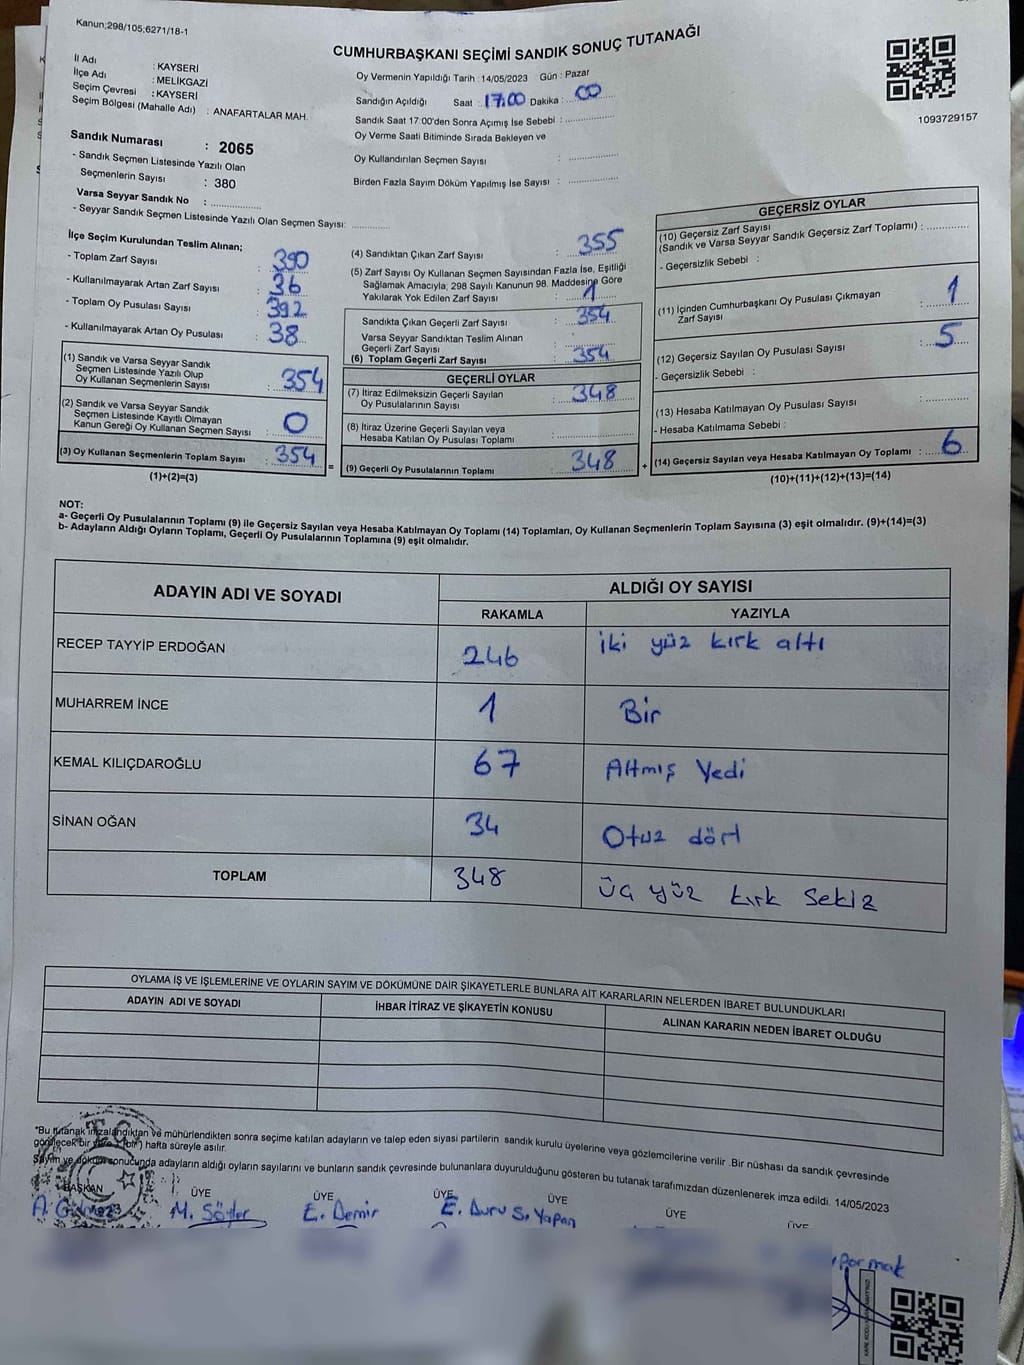 Kanun;298/105;6271/18-1
CUMHURBAŞKANI SEÇİMİ SANDIK SONUÇ TUTANAĞI
1093729157
İl Adı : KAYSERİ
İlçe Adı : MELİKGAZİ
Seçim Çevresi : KAYSERİ
Seçim Bölgesi (Mahalle Adı) : ANAFARTALAR MAH.
Sandık Numarası : 2065
- Sandık Seçmen Listesinde Yazılı Olan
Seçmenlerin Sayısı : 380
Varsa Seyyar Sandık No : ..............
- Seyyar Sandık Seçmen Listesinde Yazılı Olan Seçmen Sayısı: ............
Oy Vermenin Yapıldığı Tarih : 14/05/2023 Gün : Pazar
Sandığın Açıldığı Saat : 17:00 Dakika : 00
Sandık Saat 17:00'den Sonra Açımış İse Sebebi : ..............
Oy Verme Saati Bitiminde Sırada Bekleyen ve
Oy Kullandırılan Seçmen Sayısı : ..............
Birden Fazla Sayım Döküm Yapılmış İse Sayısı : ..............
İlçe Seçim Kurulundan Teslim Alınan;
- Toplam Zarf Sayısı : 390
- Kullanılmayarak Artan Zarf Sayısı : 36
- Toplam Oy Pusulası Sayısı : 392
- Kullanılmayarak Artan Oy Pusulası : 38
(1) Sandık ve Varsa Seyyar Sandık
Seçmen Listesinde Yazılı Olup
Oy Kullanan Seçmenlerin Sayısı : 354
(2) Sandık ve Varsa Seyyar Sandık
Seçmen Listesinde Kayıtlı Olmayan
Kanun Gereği Oy Kullanan Seçmen Sayısı : 0
(3) Oy Kullanan Seçmenlerin Toplam Sayısı : 354
(1)+(2)=(3)
(4) Sandıktan Çıkan Zarf Sayısı : 355
(5) Zarf Sayısı Oy Kullanan Seçmen Sayısından Fazla İse, Eşitliği
Sağlamak Amacıyla; 298 Sayılı Kanunun 98. Maddesine Göre
Yakılarak Yok Edilen Zarf Sayısı : 1
Sandıkta Çıkan Geçerli Zarf Sayısı : 354
Varsa Seyyar Sandıktan Teslim Alınan
Geçerli Zarf Sayısı
(6) Toplam Geçerli Zarf Sayısı : 354
GEÇERLİ OYLAR
(7) İtiraz Edilmeksizin Geçerli Sayılan
Oy Pusulalarının Sayısı : 348
(8) İtiraz Üzerine Geçerli Sayılan veya
Hesaba Katılan Oy Pusulası Toplamı : ..............
= (9) Geçerli Oy Pusulalarının Toplamı : 348
GEÇERSİZ OYLAR
(10) Geçersiz Zarf Sayısı
(Sandık ve Varsa Seyyar Sandık Geçersiz Zarf Toplamı) : ............
- Geçersizlik Sebebi :
(11) İçinden Cumhurbaşkanı Oy Pusulası Çıkmayan
Zarf Sayısı : 1
(12) Geçersiz Sayılan Oy Pusulası Sayısı : 5
- Geçersizlik Sebebi :
(13) Hesaba Katılmayan Oy Pusulası Sayısı : ............
- Hesaba Katılmama Sebebi :
+ (14) Geçersiz Sayılan veya Hesaba Katılmayan Oy Toplamı : 6
(10)+(11)+(12)+(13)=(14)
NOT:
a- Geçerli Oy Pusulalarının Toplamı (9) ile Geçersiz Sayılan veya Hesaba Katılmayan Oy Toplamı (14) Toplamları, Oy Kullanan Seçmenlerin Toplam Sayısına (3) eşit olmalıdır. (9)+(14)=(3)
b- Adayların Aldığı Oyların Toplamı, Geçerli Oy Pusulalarının Toplamına (9) eşit olmalıdır.
ADAYIN ADI VE SOYADI
ALDIĞI OY SAYISI
RAKAMLA YAZIYLA
RECEP TAYYİP ERDOĞAN 246 iki yüz kırk altı
MUHARREM İNCE 1 Bir
KEMAL KILIÇDAROĞLU 67 Altmış Yedi
SİNAN OĞAN 34 Otuz dört
TOPLAM 348 üç yüz kırk Sekiz
OYLAMA İŞ VE İŞLEMLERİNE VE OYLARIN SAYIM VE DÖKÜMÜNE DAİR ŞİKAYETLERLE BUNLARA AİT KARARLARIN NELERDEN İBARET BULUNDUKLARI
ADAYIN ADI VE SOYADI İHBAR İTİRAZ VE ŞİKAYETİN KONUSU ALINAN KARARIN NEDEN İBARET OLDUĞU
*Bu tutanak imzalandıktan ve mühürlendikten sonra seçime katılan adayların ve talep eden siyasi partilerin sandık kurulu üyelerine veya gözlemcilerine verilir .Bir nüshası da sandık çevresinde
görülecek bir yere 1 (bir) hafta süreyle asılır.
Sayım ve döküm sonucunda adayların aldığı oyların sayılarını ve bunların sandık çevresinde bulunanlara duyurulduğunu gösteren bu tutanak tarafımızdan düzenlenerek imza edildi. 14/05/2023
T.C.
BAŞKAN ÜYE ÜYE ÜYE ÜYE ÜYE ÜYE
M. Söyler E. Demir E. Duru S. Yapan